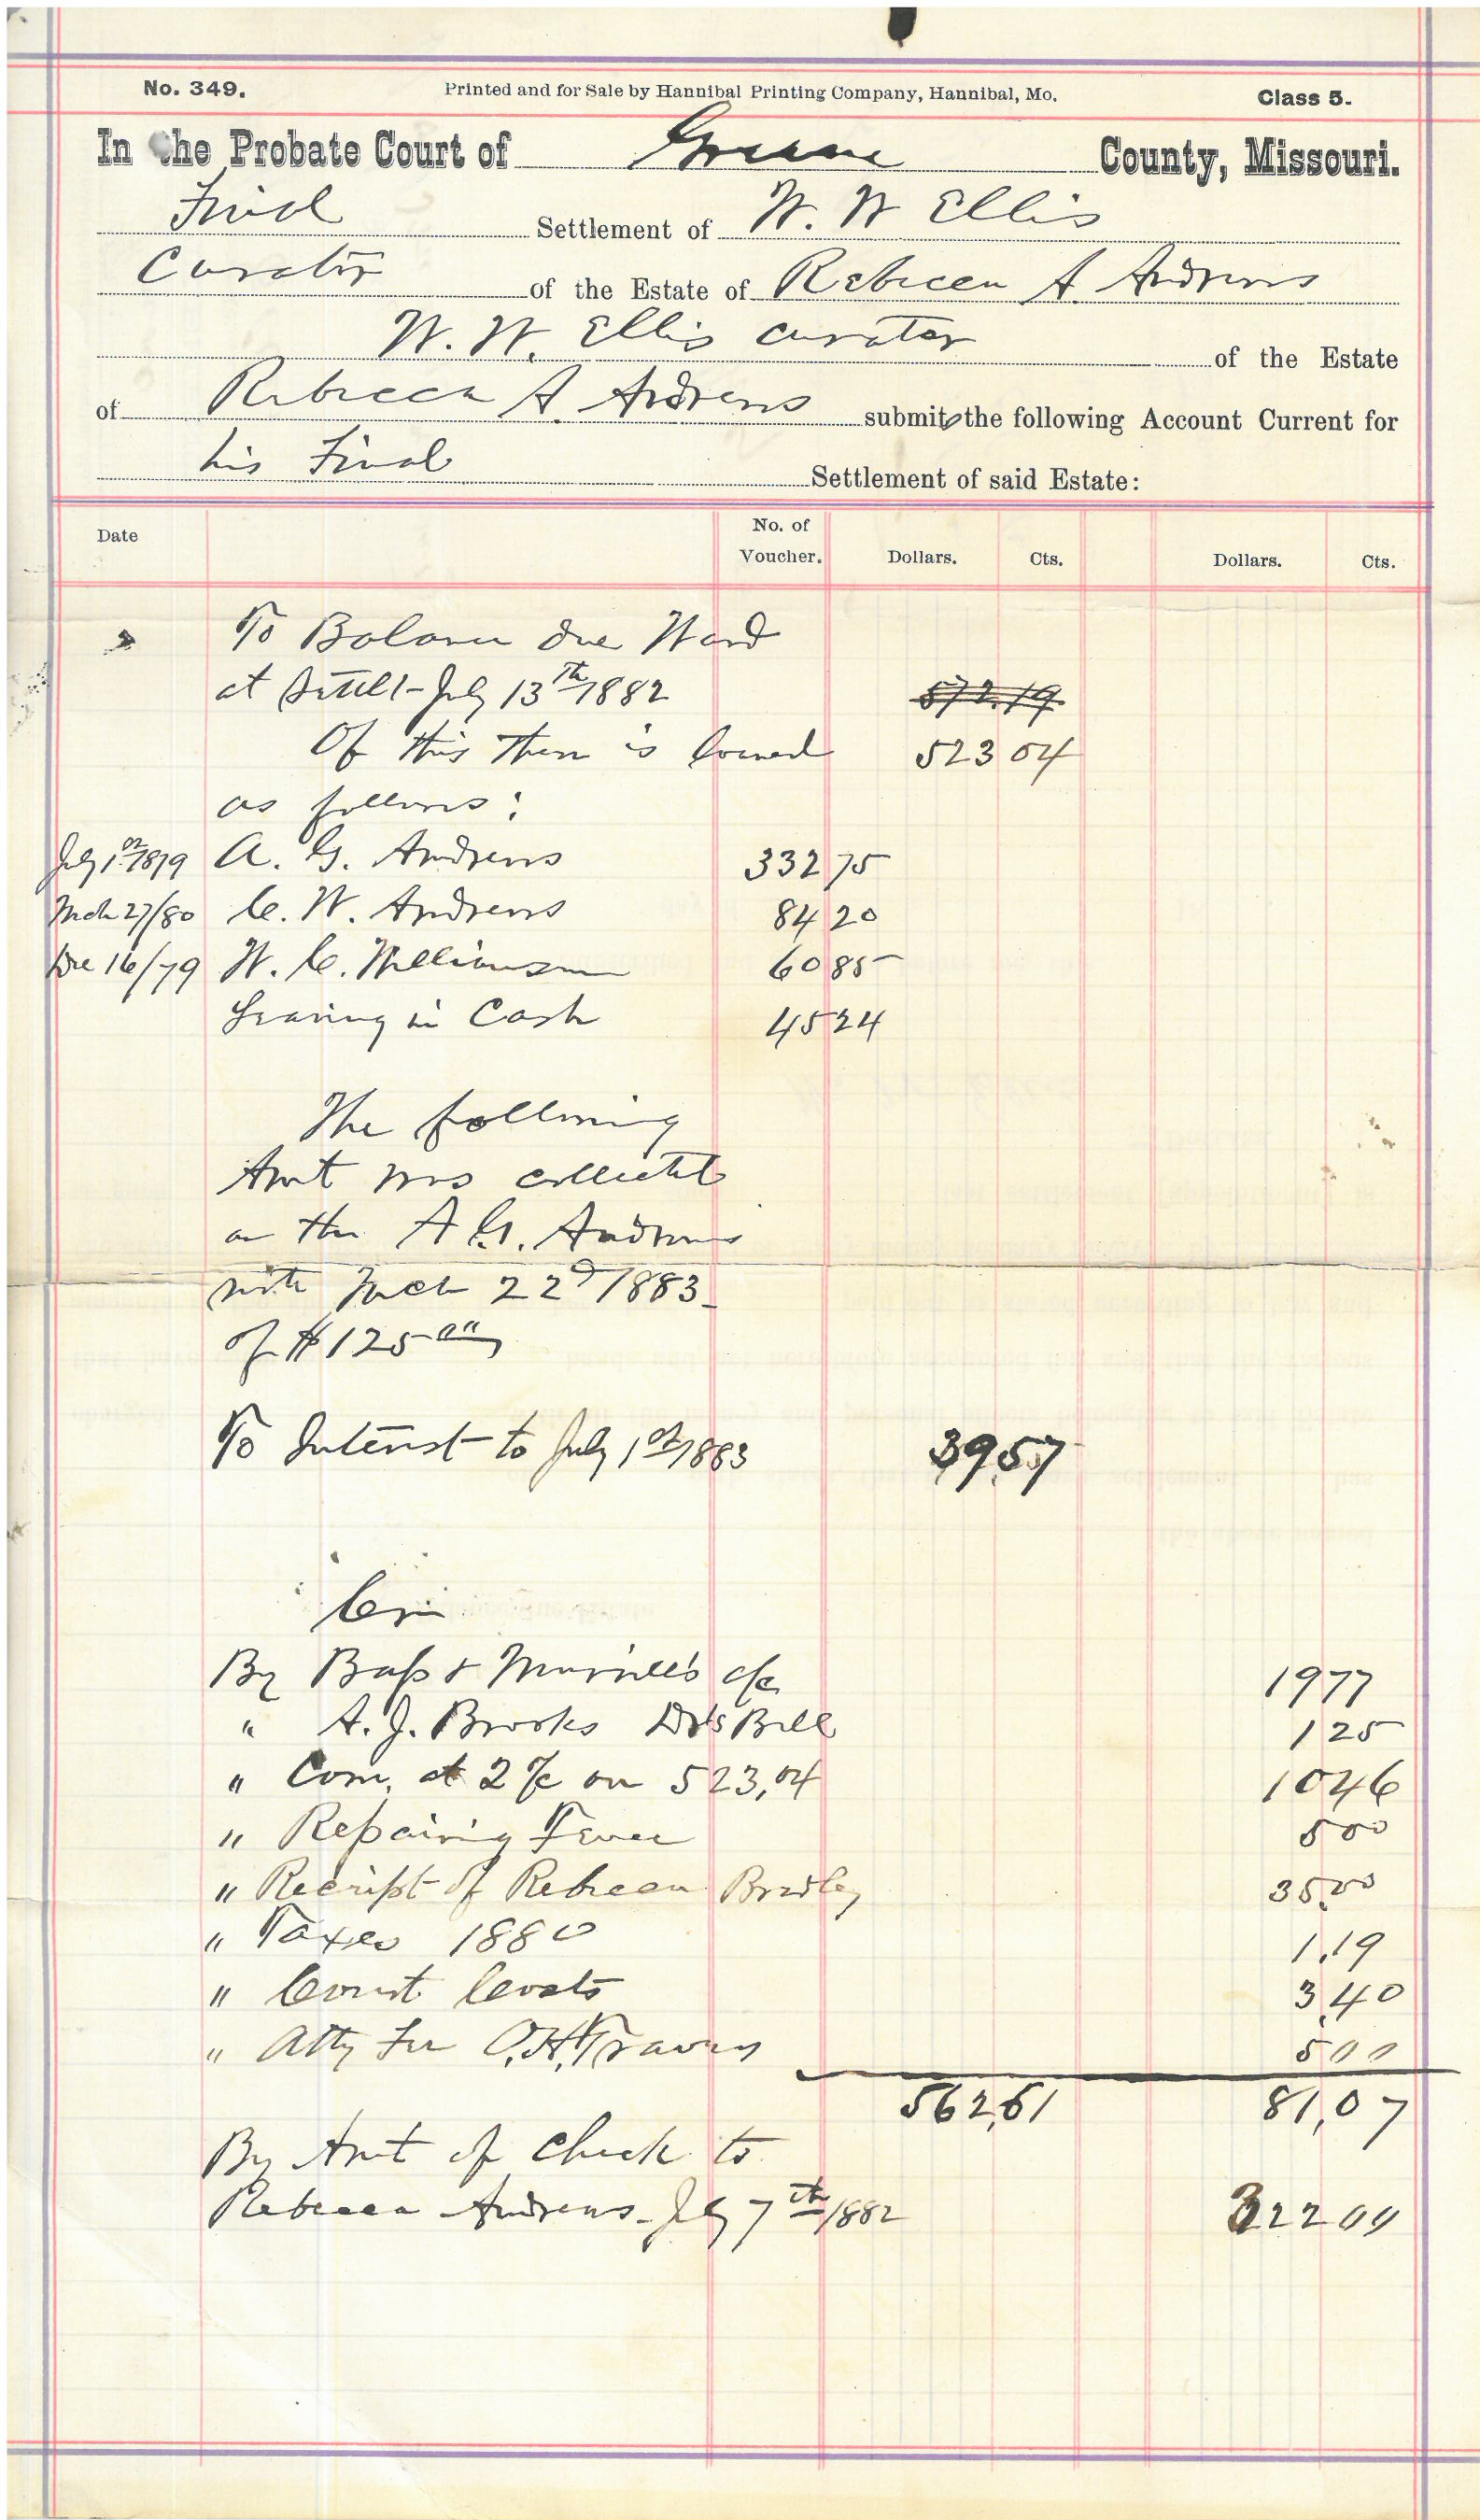 No. 349. Printed and for Sale by Hannibal Printing Company, Hannibal, Mo. Class 5.
In the Probate Court of Greene County, Missouri.
Final Settlement of W. W Ellis
Curator of the Estate of Rebecca A. Andrews
W. W. Ellis curator of the Estate
of Rebecca A. Andrews submits the following Account Current for
his Final Settlement of said Estate:
Date No. of Voucher. Dollars. Cts. Dollars. Cts.
To Balance due Ward
at Settlt July 13th 1882 572.19
Of this there is loaned 523 04
as follows:
July 1st 1879 A. G. Andrews 332 75
Mch 27/80 C. W. Andrews 84 20
Dec 16/79 W. C. Williamson 60 85
Leaving in Cash 45 24
The following
Amt was collected
on the A G. Andrews
note Mch 22d 1883
of $125 00
To Interest to July 1st 1883 39 57
Cr.
By Bass & Murrell's a/c 19 77
" A. J. Brooks Dr's Bill 1 25
" Com. at 2 % on 523,04 10 46
" Repairing Fence 5 00
" Receipt of Rebecca Bradley 35.00
" Taxes 1880 1,19
" Court Costs 3,40
" Atty Fee O. H. Travers 5 00
562,61 81,07
By Amt of Check to
Rebecca Andrews July 7th 1882 322 00